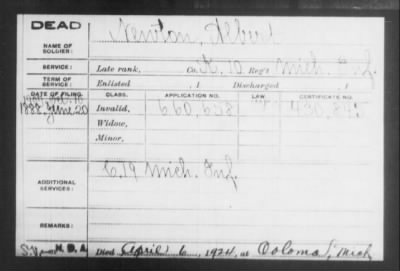 DEAD
NAME OF SOLDIER: Newton, Albert
SERVICE: Late rank, Co. K. 10 Reg't Mich Inf.
TERM OF SERVICE: Enlisted , 1 Discharged , 1
DATE OF FILING. CLASS. APPLICATION NO. LAW. CERTIFICATE NO.
1888 June 20 Invalid, 660,658
Widow,
Minor,
ADDITIONAL SERVICES: C. 19 Mich. Inf.
REMARKS:
Died April 6, 1924, at Coloma, Mich